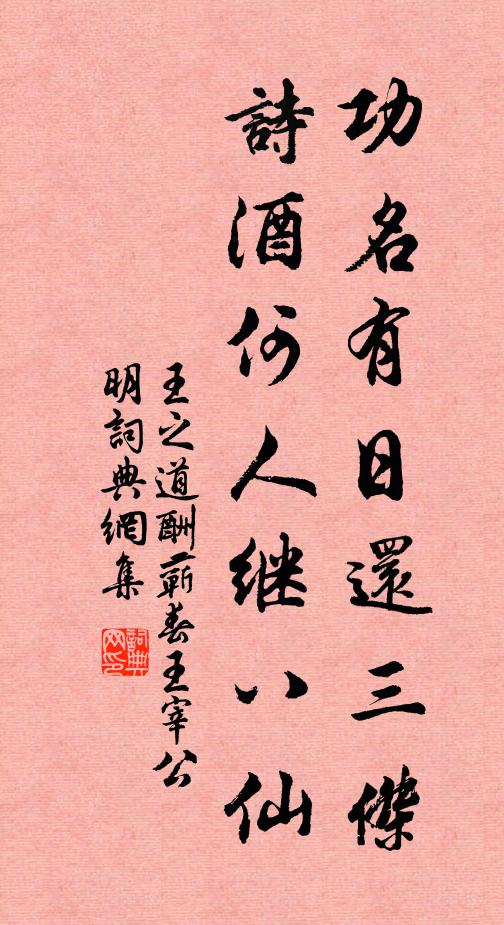 功名有日還三傑
詩酒何人继八仙
王之道酬蘄春王宰公
明詞典網集
詞典网印